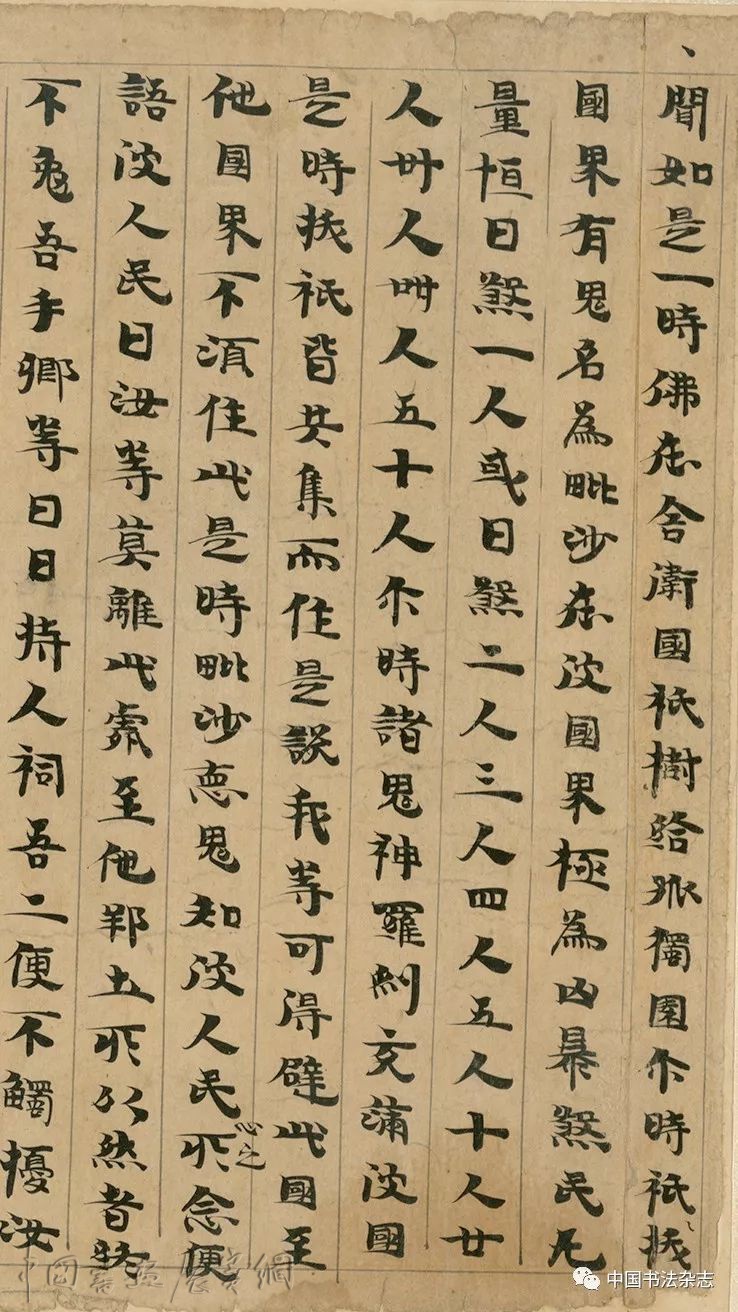 、聞如是一時佛在舍衛國祇樹給孤獨園尒時祇拔
國界有鬼名為毗沙在彼國界極為凶暴煞民无
量恒日煞一人或日煞二人三人四人五人十人廿
人卅人卌人五十人尒時諸鬼神羅剎充滿彼國
是時拔祇皆共集而住是說我等可得避此國至
他國界不須住此是時毗沙惡鬼知彼人民心之所念便
語彼人民曰汝等莫離此處至他邦土所以然者終
不免吾手卿等日日持人祠吾二便不觸擾汝
中国书法杂志